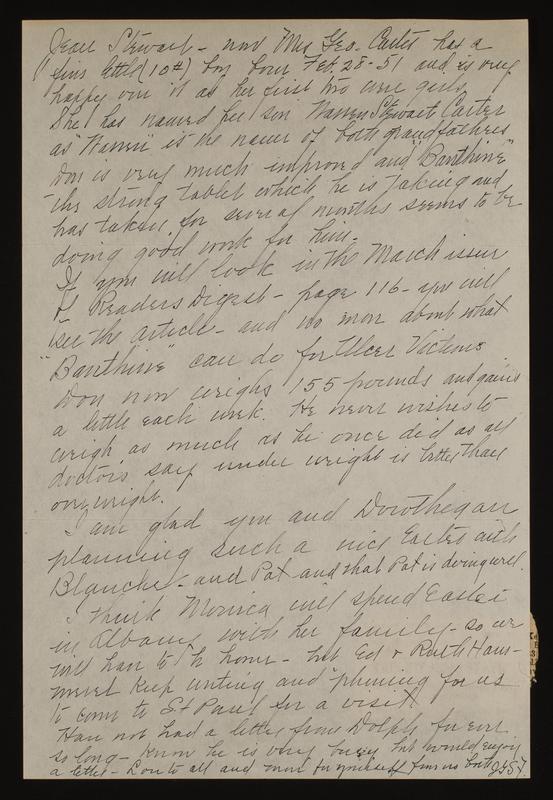 Dear Stewart - now Mrs Geo. Carter has a
fine little (10#) boy born Feb. 28-51 and is very
happy over it as her first two were girls.
She has named her son Warren Stewart Carter
as "Warren" is the name of both grandfathers
Don is very much improved and "Banthine"
the strong tablet which he is taking and
has taken for several months seems to be
doing good work for him.
If you will look in the March issue
of Readers Digest - page 116 - you will
see the article - and no more about what
"Banthine" can do for Ulcer Victims
Don now weighs 155 pounds and gains
a little each week. He never wishes to
weigh as much as he once did as all
doctors say under weight is better than
over weight.
I am glad you and Dorothy are
planning such a nice Easter with
Blanche - and Pat - and that Pat is doing well.
I think Monica will spend Easter
in Albany with her family - so we
will have to be home - but Ed & Ruth
keep writing and phoning for us
to come to St Paul for a visit
Have not had a letter from Dolph for ever
so long - know he is very busy but would enjoy
a letter - Love to all and more for yourself from us both